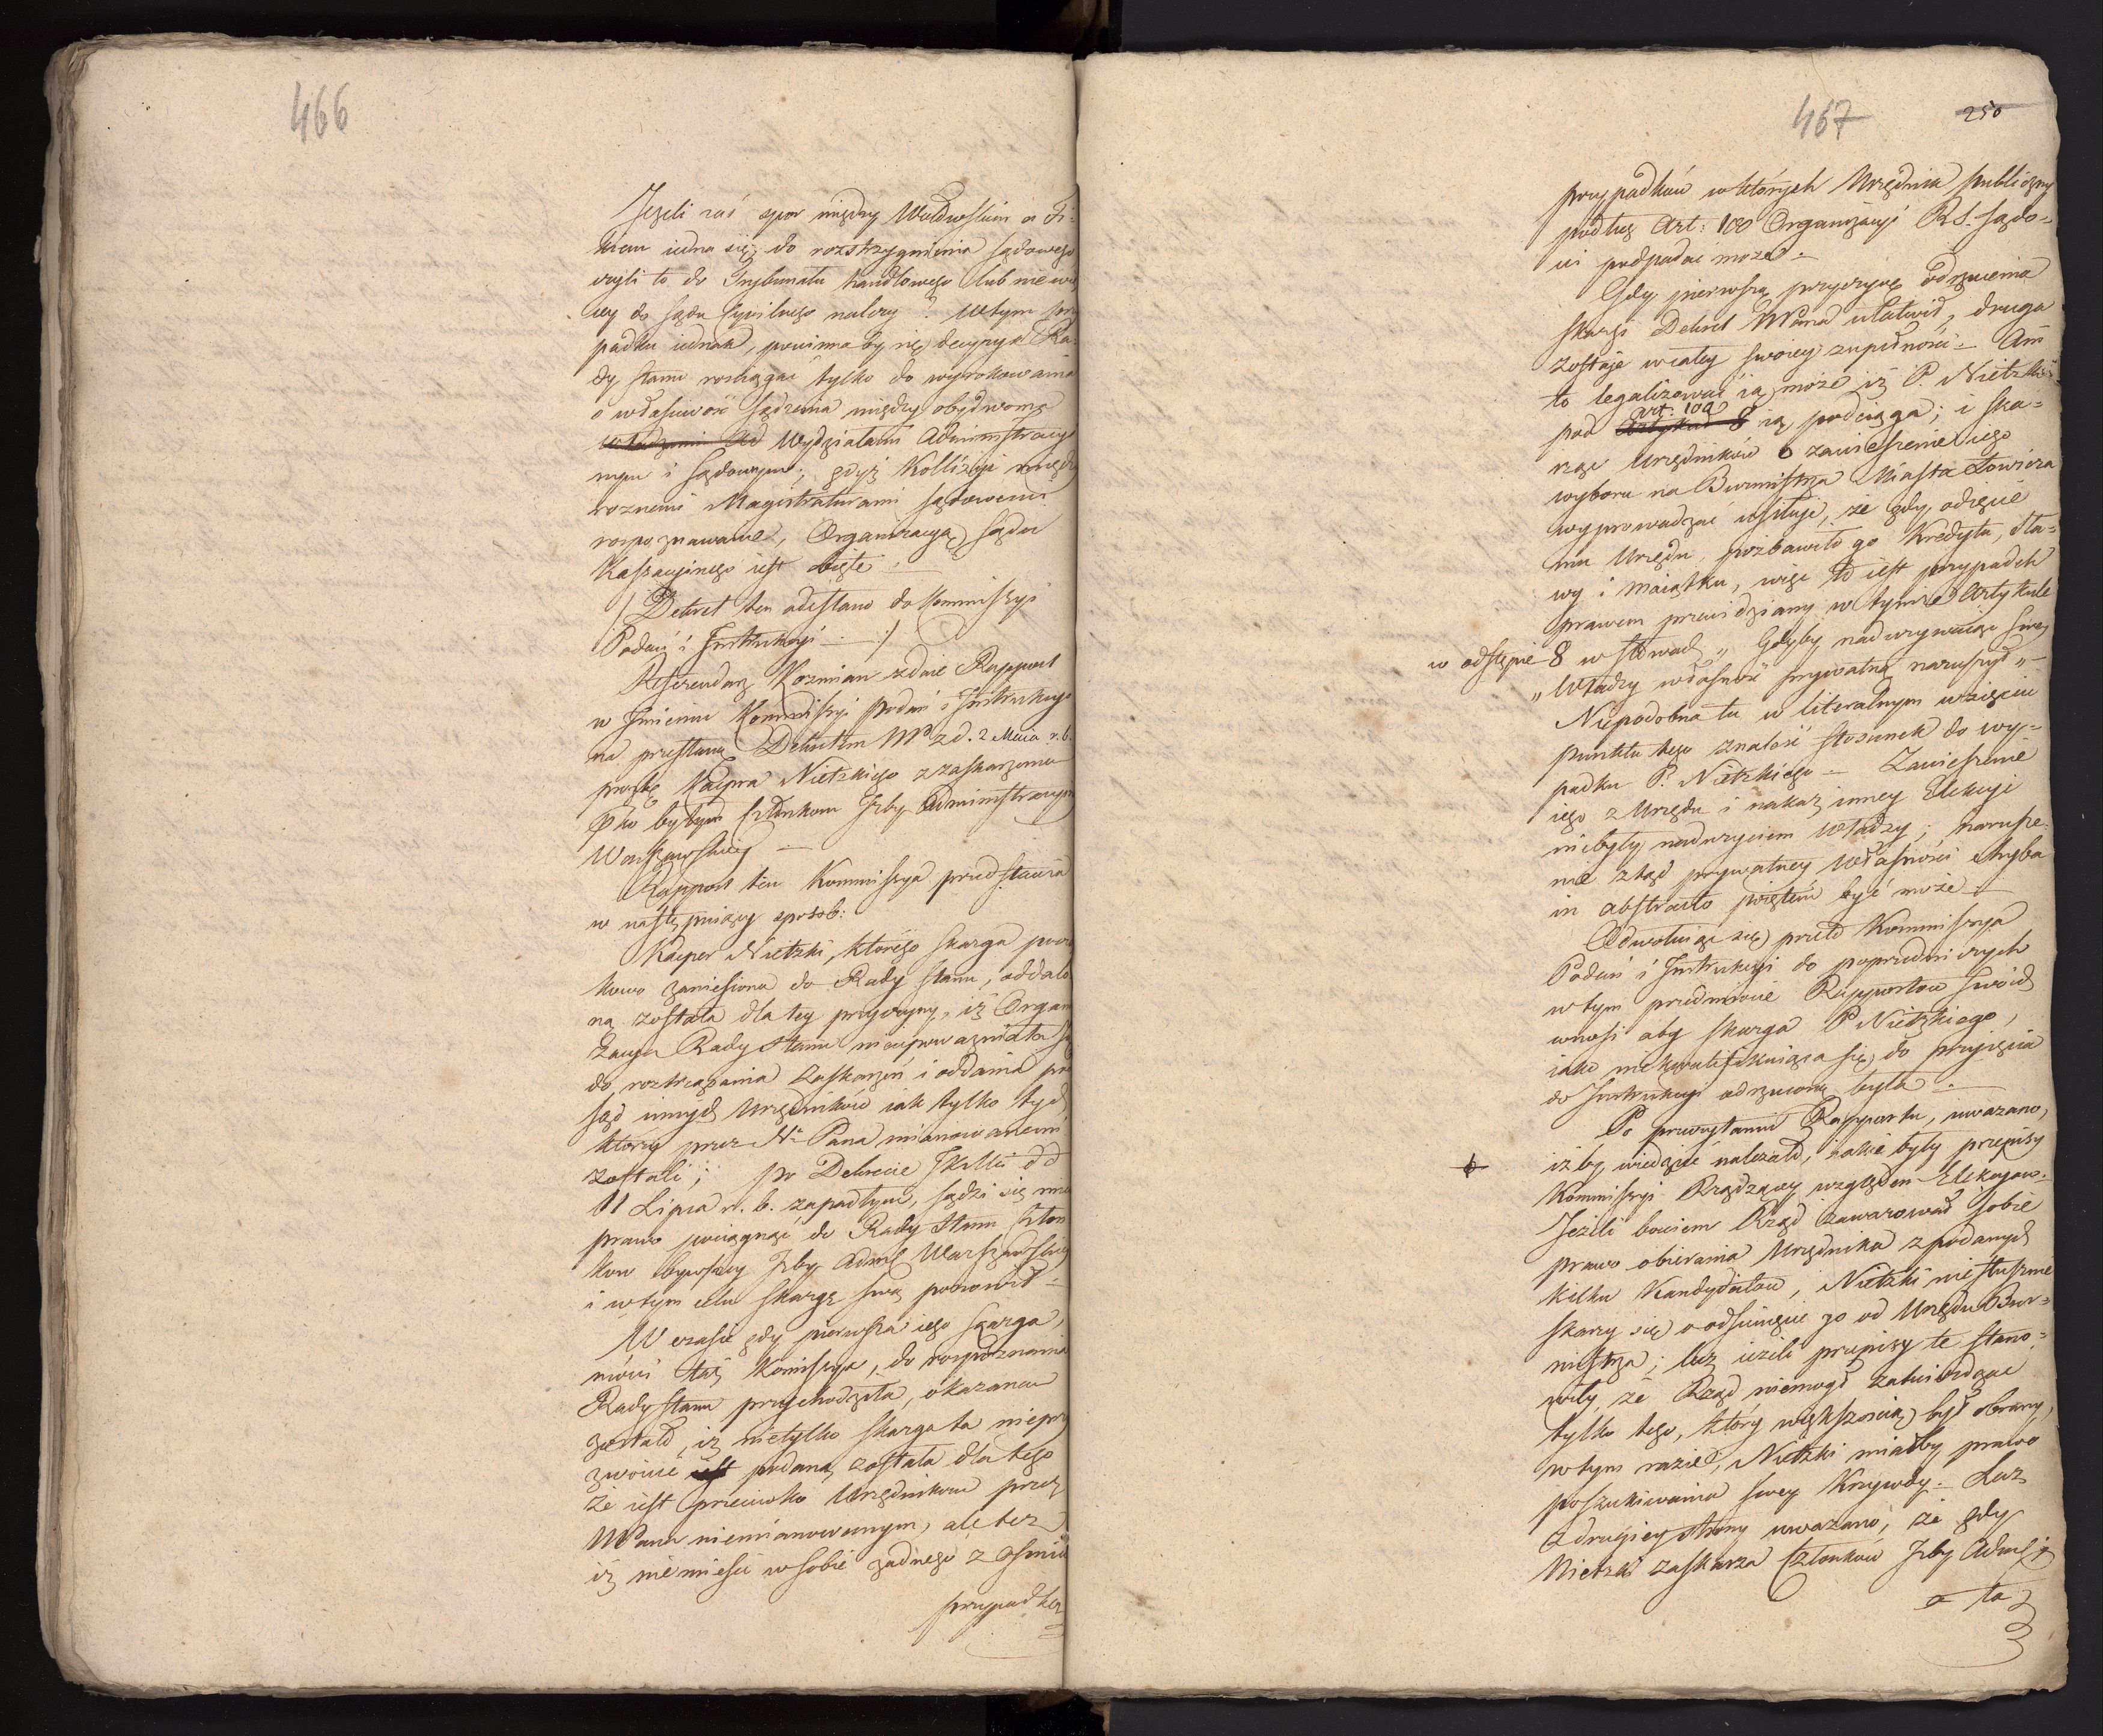 466
Jeżeli zaś spor między Waldowskim a Fi-
kiem iedna się, do rozstrzygnienia sądowego
czyli to do Trybunału handlowego lub
cey do Sądu Cywilnego należy? W tym
padku iednak, powinna by się decyzya Ra-
dy Stanu rozciągać tylko do wyrokowania
o własciwość sądzenia między obydwoma
Wydziałami Administracyi
nym i Sądowym; gdyż Kollizyi między
roznemi Magistraturami sądowemi
rozpoznawanie, Organizacyą Sądu
Kassacyinego iest obięte.
/: Dekret ten odesłano do Kommissyi
Podań i Instrukcyi :/
Referendarz Kozmian zdaie Rapport
w Imieniu Kommissyi Podań i Instrukcyi
na przesłaną Dekretem NPa z d. 2 Maia r. b.
prozbę Kacpra Nietzkiego z zaskarzeniem
pko byłym Członkom Izby Administracyin
Warszawskiey —
Rapport ten Kommissya przedstawia
w następuiący sposob:
Kacper Nietzki, ktorego skarga
kowo zaniesiona do Rady Stanu, oddalo
ną została dla tey przyczyny, iż Organi
zacya Rady Stanu nieupoważniała Jey
do roztrząsania zaskarzeń i oddania pod
Sąd innych Urzędników iak tylko tych
ktorzy przez Nº Pana mianowanemi
zostali; po Dekrecie JKMci dd
11 Lipca r. b. zapadłym, sądzi się mieć
prawo pociągnąć do Rady Stanu Człon
kow bywszey Izby Admći Warszawskiey
i w tym celu skargę swą ponowił —
W czasie gdy pierwsza iego skarga,
mówi taż Komissya, do rozpoznania
Rady Stanu przychodziła, okazanem
zostało, iż nietylko skarga ta niepr
zwoicie podaną została dla tego
że iest przeciwko Urzędnikom przez
NPana niemianowanym, ale też
iż nie mieści w sobie żadnego z ośmiu
przypadkow
467 250
przypadków w których Urzędnik publiczny
podług Art: 100 Organizacyi R. S. Sądo-
wi podpadać może —
Gdy pierwszą przyczynę odrzucenia
skargi Dekret NPana ułatwił, druga
zostaje w całey swoiey zupełności — Ani
to legalizować ią może iż P. Nietzki
pod art. 100 ią podciąga; i ska-
rząc Urzędników o zawieszenie iego
wyboru na Burmistrza Miasta Łowicza
wyprowadzać usiłuje, że gdy odięcie
mu Urzędu pozbawiło go Kredytu, sła-
wy i maiątku, więc to iest przypadek
prawem przewidziany w tymże Artykule
w odstępie 8 w słowach „Gdyby nadużywaiąc swey
„Władzy własność prywatną naruszył„—
Niepodobna tu w literalnym wzięciu
punktu tego znaleść stosunek do wy-
padku P. Nietzkiego — Zawieszenie
iego z Urzędu i nakaz inney Elekcyi
niebyły nadużyciem Władzy; narusze-
nie ztąd prywatney własności chyba
in abstracto poiętem być może —
Odwołuiąc się przeto Kommissya
Podań i Instrukcyi do poprzedniczych
w tym przedmiocie Rapportow swoich
wnosi aby skarga P. Nietzkiego,
iako niekwalifikuiąca się, do przyięcia
do Instrukcyi odrzuconą była —
Po przeczytaniu Rapportu, uważano,
iż by wiedzieć należało, iakie były przepisy
Kommissyi Rządzącey względem Elekcyow.
Jeżeli bowiem Rząd zawarował sobie
prawo obierania Urzędnika z podanych
kilku Kandydatów, Nietzki niesłusznie
skarzy się o odsunięcie go od Urzędu Bur-
mistrza; lecz ieżeli przepisy te stano-
wiły, że Rząd niemógł zatwierdzać
tylko tego, który większością był obrany,
w tym razie, Nietzki miałby prawo
poszukiwania swey Krzywdy — Lecz
z drugiey strony uważano, że gdy
Nietzki zaskarza Członków Izby Admći
a ta